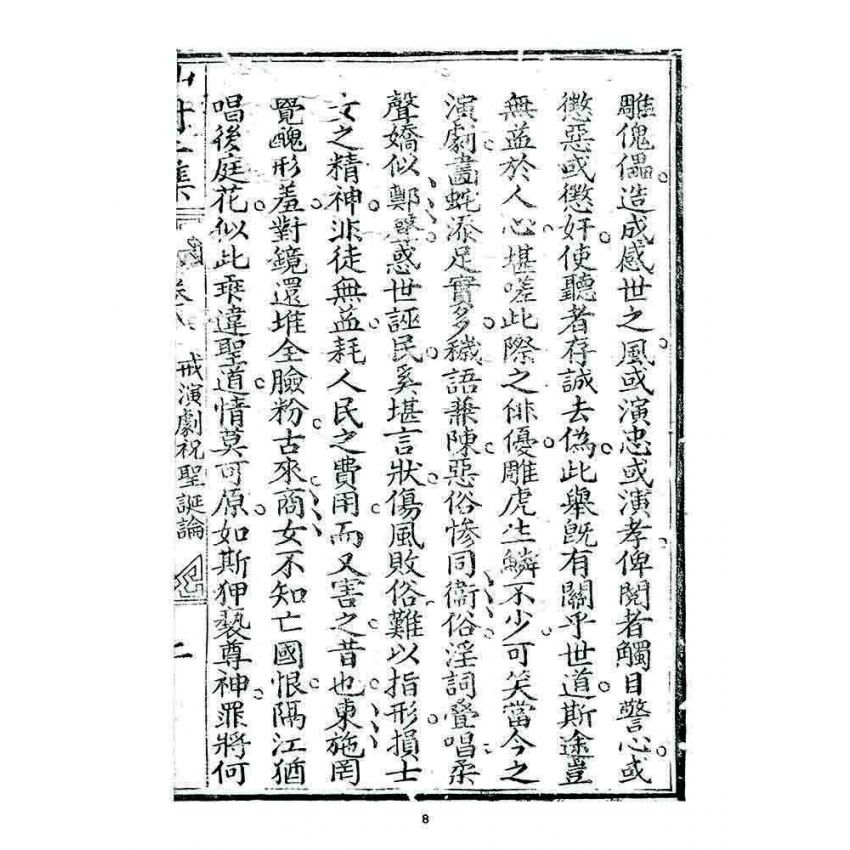 雕傀儡造成感世之風或演忠或演孝俾閱者觸目警心或
懲惡或懲奸使聽者存誠去偽此舉旣有關乎世道斯途豈
無益於人心堪嗟此際之俳優雕虎生鱗不少可笑當今之
演劇畫蛇添足實多穢語兼陳惡俗慘同衞俗淫詞疊唱柔
聲嬌似鄭聲惑世誣民奚堪言狀傷風敗俗難以指形損士
女之精神非徒無益耗人民之費用而又害之昔也東施罔
覺醜形羞對鏡還堆全臉粉古來商女不知亡國恨隔江猶
唱後庭花似此乘違聖道情莫可原如斯狎褻尊神罪將何
集
戒演劇祝聖誕論
二
8